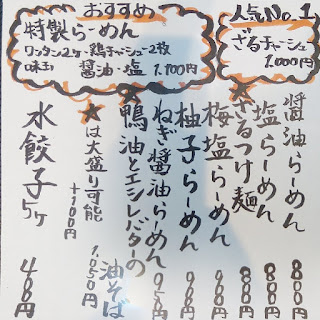 おすすめ
特製らーめん
ワンタン2ケ・鶏チャーシュー2枚
味玉 醤油・塩 1,100円
人気No.1
ざるチャーシュー
1,000円
醤油らーめん 800円
塩らーめん 800円
★ざるつけ麺 800円
梅塩らーめん 900円
柚子らーめん 900円
ねぎ醤油らーめん
鴨油とエシレバターの
油そば
1,050円
★は大盛り可能
+100円
水餃子5ヶ 400円